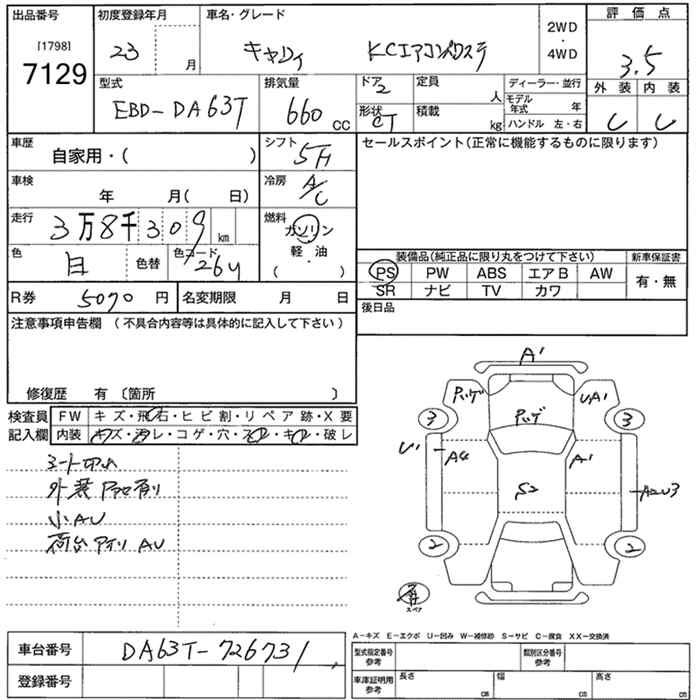 出品番号 初度登録年月 車名・グレード 2WD・4WD 評価点
[1798] 7129 23 月 キャリイ KCエアコンパワステ 3.5
外装 内装
型式 排気量 ドア 2 定員 人 ディーラー・並行
EBD-DA63T 660 CC 形状 CT 積載 kg モデル年式 年
ハンドル 左・右
車歴 シフト セールスポイント(正常に機能するものに限ります)
自家用・( ) 5F
車検 冷房
年 月( 日) A/C
走行 3万8千309 km 燃料 ガソリン
軽・油
( )
色 白 色替 色コード 26U
装備品(純正品に限り丸をつけて下さい) 新車保証書
PS PW ABS エアB AW 有・無
SR ナビ TV カワ
R券 5070 円 名変期限 月 日 後日品
注意事項申告欄 (不具合内容等は具体的に記入して下さい)
修復歴 有 〔箇所 〕
検査員 FW キズ・飛石・ヒビ割・リペア跡・X要
記入欄 内装 キズ・汚レ・コゲ・穴・スレ・キレ・破レ
外装
小AU
荷台 AU
A1
UA1
3 3
U1 A1
S2
2 2
スペア
A-キズ E-エクボ U-凹み W-補修跡 S-サビ C-腐食 XX-交換済
車台番号 DA63T-726731
型式指定番号 参考 類別区分番号 参考
登録番号
車庫証明用 参考 長さ cm 幅 cm 高さ cm